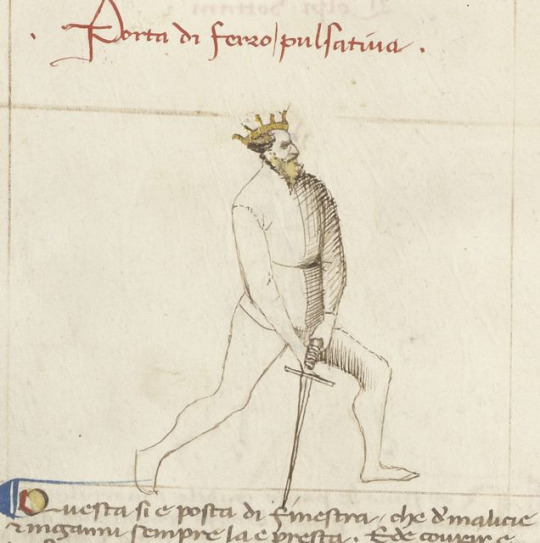 Porta di ferro pulsativa.
Questa si e posta di finestra che d'malicie
e inganni sempre la e presta. E de covrir e